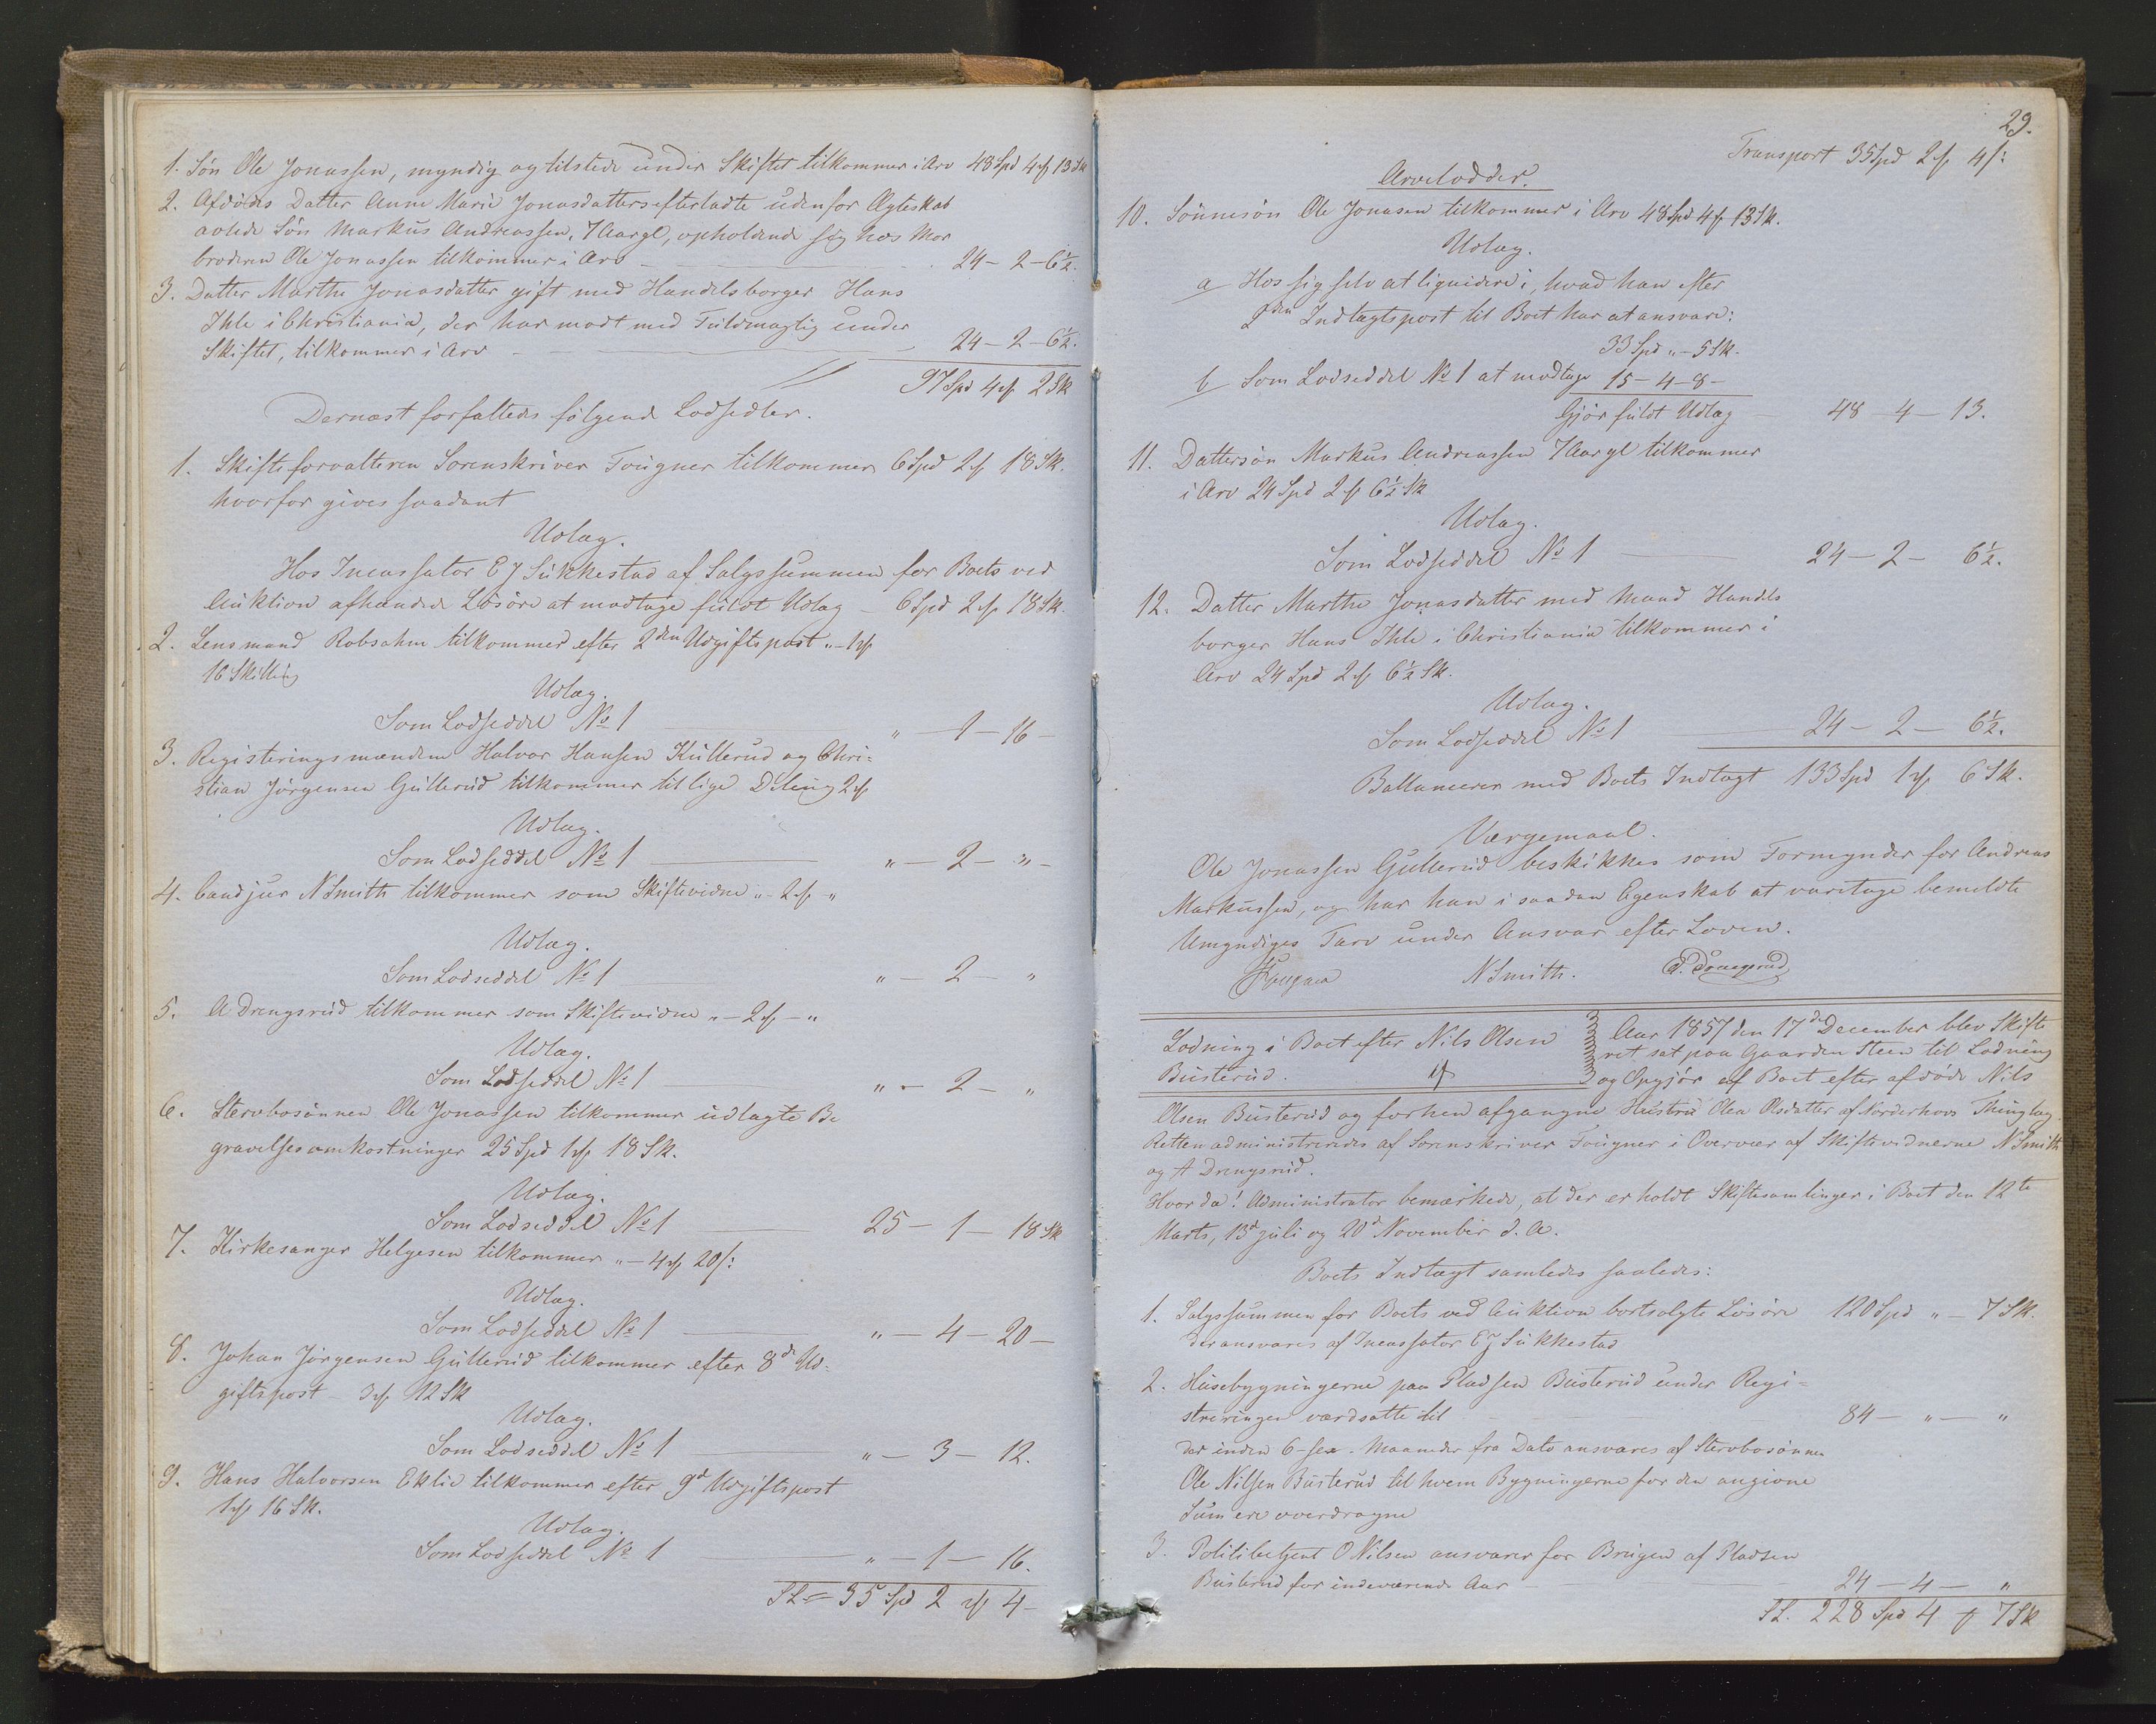 1. Søn Ole Jonassen, myndig og tilstede under Skiftet tilkommer i Arv 48 Spd 4 # 13 Sk
2. Afdødes Datter Anne Marie Jonasdatters efterladte udenfor Ægteskab
avlede Søn Markus Andreassen, 7 Aar gl, opholdende sig hos Mor
broderen Ole Jonassen tilkommer i Arv 24 - 2 - 6½.
3. Datter Marthe Jonasdatter gift med Handelsborger Hans
Ihle i Christiania, der har mødt med Fuldmægtig under
Skiftet, tilkommer i Arv 24 - 2 - 6½.
97 Spd 4 # 2 Sk
Dernæst forfattedes følgende Lodsedler.
1. Skifteforvalteren Sorenskriver Fougner tilkommer 6 Spd 2 # 18 Sk.
hvorfor gives saadant
Udlæg.
Hos Incassator E J Sukkestad af Salgssummen for Boets ved
Auktion afhændede Løsøre at modtage fuldt Udlæg - 6 Spd 2 # 18 Sk.
2. Lensmand Robsahm tilkommer efter 2den Udgiftspost „ - 1 #
16 Skilling
Udlæg.
Som Lodseddel No 1 „ - 1 - 16 -
3. Registeringsmændene Halvor Hansen Kullerud og Chri-
stian Jørgensen Gullerud tilkommer til lige Deling 2 #
Udlæg.
Som Lodseddel No 1 „ - 2 - „ -
4. Cand jur N Smith tilkommer som Skiftevidne „ - 2 # „
Udlæg.
Som Lodseddel No 1 „ - 2 - „
5. A Drengsrud tilkommer som Skiftevidne „ - 2 # - „
Udlæg.
Som Lodseddel No 1 „ - 2 - „
6. Stervbosønnen Ole Jonassen tilkommer udlagte Be
gravelsesomkostninger 25 Spd 1 # 18 Sk.
Udlæg.
Som Lodseddel No 1 25 - 1 - 18 Sk
7. Kirkesanger Helgesen tilkommer „ - 4 # 20 s:
Udlæg.
Som Lodseddel No 1 „ - 4 - 20 -
8. Johan Jørgensen Gullerud tilkommer efter 8de Ud-
giftspost - 3 # 12 Sk
Udlæg.
Som Lodseddel No 1 „ - 3 - 12.
9. Hans Halvorsen Eklie tilkommer efter 9d Udgiftspost
1 # 16 Sk.
Udlæg.
Som Lodseddel No 1 „ - 1 - 16.
SL = 35 Spd 2 # 4 -
29.
Transport 35 Spd 2 # 4 s:
Arvelodder.
10. Sønnesøn Ole Jonasen tilkommer i Arv 48 Spd 4 # 13 Sk.
Udlæg.
a Hos sig selv at liquidere i, hvad han efter
2den Indtægtspost til Boet har at ansvare:
33 Spd „ - 5 Sk.
b Som Lodseddel No 1 at modtage 15 - 4 - 8 -
Gjør fuldt Udlæg 48 - 4 - 13.
11. Dattersøn Markus Andreassen 7 Aar gl tilkommer
i Arv 24 Spd 2 # 6½ Sk
Udlæg.
Som Lodseddel No 1 24 - 2 - 6½.
12. Datter Marthe Jonasdatter med Mand Handels
borger Hans Ihle i Christiania tilkommer i
Arv 24 Spd 2 # 6½ Sk.
Udlæg.
Som Lodseddel No 1 24 - 2 - 6½.
Ballancerer med Boets Indtægt 133 Spd 1 # 6 Sk.
Værgemaal.
Ole Jonassen Gullerud beskikkes som Formynder for Andreas
Markussen, og har han i saadan Egenskab at varetage bemeldte
Umyndiges Tarv under Ansvar efter Loven.
Fougner N Smith. A. Drengsrud
Lodning i Boet efter Nils Olsen
Busterud.
Aar 1857 den 17de December blev Skifte
ret sat paa Gaarden Steen til Lodning
og Opgjør af Boet efter afdøde Nils
Olsen Busterud og forhen afgangne Hustru Olea Olsdatter af Norderhovs Thinglag
Retten administreredes af Sorenskriver Fougner i Overvær af Skiftevidnerne N Smith
og A Drengsrud.
Hvor da! Administrator bemærkede, at der er holdt Skiftesamlinger i Boet den 12te
Marts, 13d juli og 20d November d. A.
Boets Indtægt samledes saaledes:
1. Salgssummen for Boets ved Auktion bortsolgte Løsøre 120 Spd „ - 7 Sk.
der ansvares af Incassator E J Sukkestad
2. Husebygningerne paa Pladsen Busterud under Regi-
streringen værdsatte til 84 - „ - „
der inden 6 - sex - Maaneder fra Dato ansvares af Stervbosønnen
Ole Nilsen Busterud til hvem Bygningerne for den angivne
Sum ere overdragne
3. Politibetjent O Nilsen ansvarer for Brugen af Pladsen
Busterud for indeværende Aar 24 - 4 - „
SL. 228 Spd 4 # 7 Sk